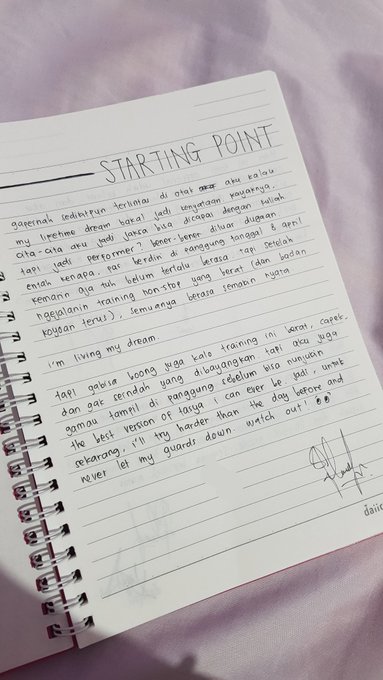 STARTING POINT
gapernah sedikitpun terlintas di otak aku kalau
my lifetime dream bakal jadi kenyataan kayaknya.
cita-cita aku jadi jaksa bisa dicapai dengan kuliah
tapi jadi performer? bener-bener diluar dugaan
entah kenapa, pas berdiri di panggung tanggal 8 april
kemarin aja tuh belum terlalu berasa tapi setelah
ngejalanin training non-stop yang berat (dan badan
koyoan terus), semuanya berasa semakin nyata
i'm living my dream.
tapi gabisa boong juga kalo training ini berat, capek,
dan gak seindah yang dibayangkan. tapi aku juga
gamau tampil di panggung sebelum bisa nunjukin
the best version of tasya i can ever be. jadi, untuk
sekarang, i'll try harder than the day before and
never let my guards down. watch out!
daiic